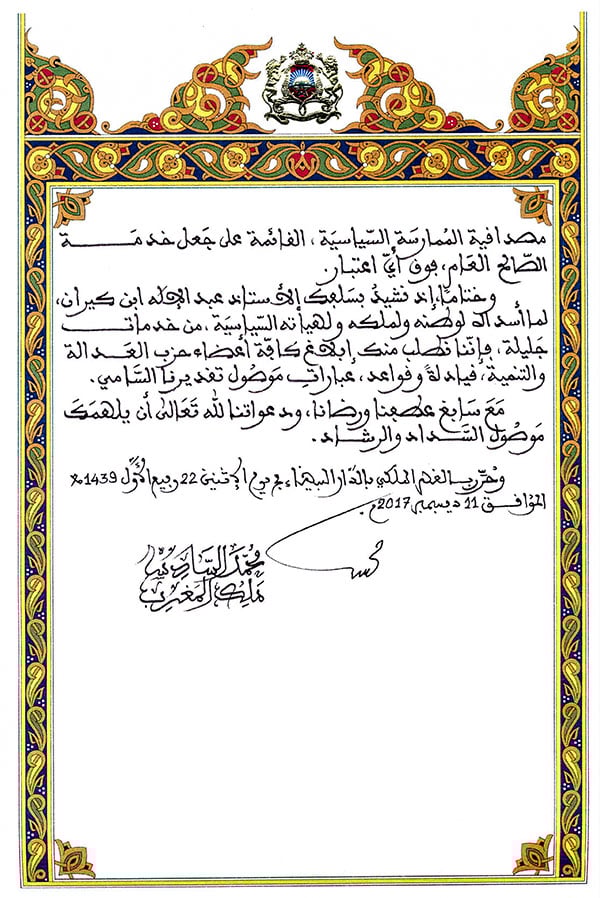 مصداقية الممارسة السّياسيّة، القائمة على جعل خدمة
الصّالح العام، فوق أيّ اعتبار.
وختاماً، إذ نشيد بسلفك الأستاذ عبد الإله ابن كيران،
لما أسداه لوطنه ولملكه وللهيأته السّياسيّة، من خدمات
جليلة، فإنّنا نطلب منك إبلاغ كافّة أعضاء حزب العدالة
والتنمية، قيادةً وقواعد، عبارات موصول تقديرنا السّامي.
مع سابغ عطفنا ورضانا، ودعواتنا لله تعالى أن يلهمك
موصول السّداد والرشاد.
وحُرّر بالقصر الملكي بالدّار البيضاء في يوم الإثنين 22 ربيع الأوّل 1439هـ
الموافق 11 ديسمبر 2017م.
محمّد السّادس
ملك المغرب